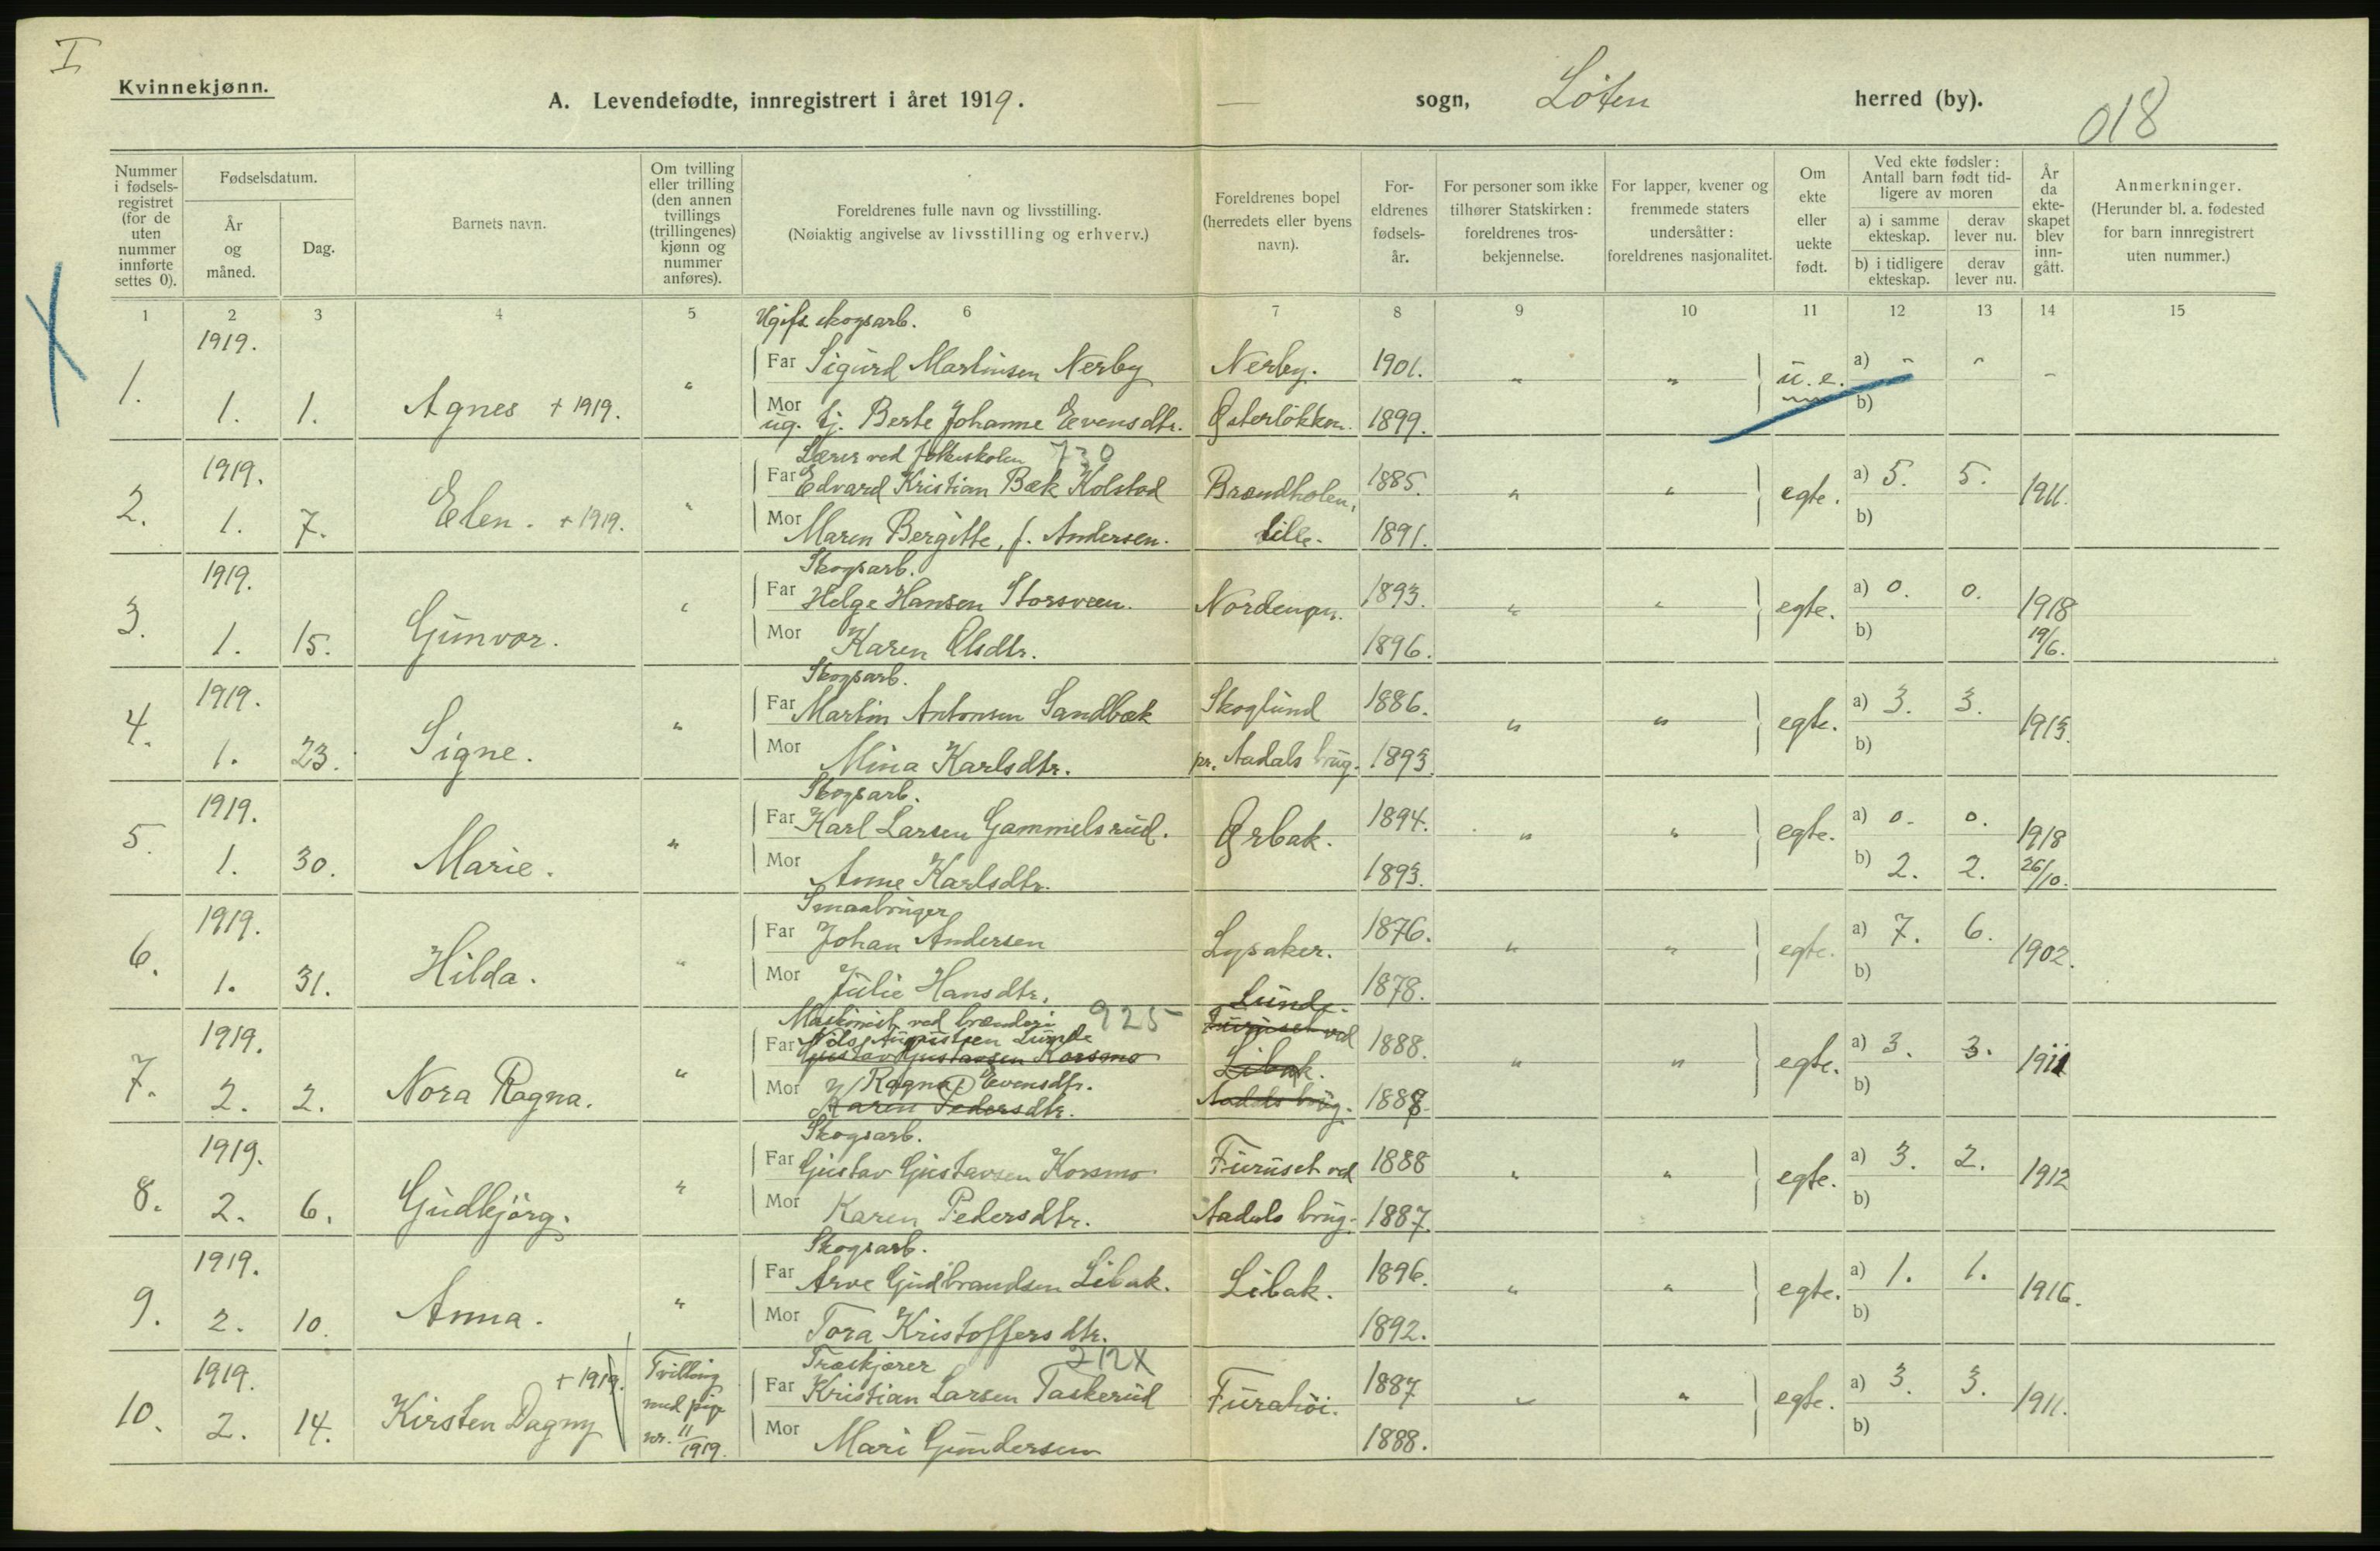 I
Kvinnekjønn.
A. Levendefødte, innregistrert i året 1919. — sogn, Löten herred (by).
018
Nummer i fødselsregistret (for de uten nummer innførte settes 0).
Fødselsdatum.
År og måned.
Dag.
Barnets navn.
Om tvilling eller trilling (den annen tvillings (trillingenes) kjønn og nummer anføres).
Foreldrenes fulle navn og livsstilling.
(Nøiaktig angivelse av livsstilling og erhverv.)
Foreldrenes bopel (herredets eller byens navn).
Foreldrenes fødselsår.
For personer som ikke tilhører Statskirken: foreldrenes trosbekjennelse.
For lapper, kvener og fremmede staters undersåtter: foreldrenes nasjonalitet.
Om ekte eller uekte født.
Ved ekte fødsler: Antall barn født tidligere av moren
a) i samme ekteskap. derav lever nu.
b) i tidligere ekteskap. derav lever nu.
År da ekteskapet blev inngått.
Anmerkninger.
(Herunder bl. a. fødested for barn innregistrert uten nummer.)
1 2 3 4 5 6 7 8 9 10 11 12 13 14 15
Ugift skogsarb.
1919.
Far Sigurd Martinsen Nerby Nerby. 1901. " " u. e. a) " " -
1. 1. 1. Agnes + 1919. "
Mor ug. tj. Berte Johanne Evensdtr. Østerlökken. 1899. b)
Lærer ved folkeskolen 730
1919.
Far Edvard Kristian Bæk Kolstad Brændholen, 1885. " " egte. a) 5. 5. 1911.
2. 1. 7. Elen. + 1919. "
Mor Maren Bergitte, f. Andersen. lille. 1891. b)
Skogsarb.
1919.
Far Helge Hansen Storsveen. 1893. " " egte. a) 0. 0. 1918
3. 1. 15. Gunvor. "
Mor Karen Olsdtr. 1896. b) 19/6.
Skogsarb.
1919.
Far Martin Antonsen Sandbæk Skoglund 1886. " " egte. a) 3. 3. 1913.
4. 1. 23. Signe. "
Mor Mina Karlsdtr. pr. Aadals brug. 1893. b)
Skogsarb.
1919.
Far Karl Larsen Gammelsrud. Ørbak. 1894. " " egte. a) 0. 0. 1918
5. 1. 30. Marie. "
Mor Anne Karlsdtr. 1893. b) 2. 2. 26/10.
Smaabruger
1919.
Far Johan Andersen Lysaker. 1876. " " egte. a) 7. 6. 1902.
6. 1. 31. Hilda. "
Mor Julie Hansdtr. 1878. b)
Maskinist ved brænderi 925 Lunde.
1919.
Far Nils Augustsen Lunde Furuset ved 1888. " " egte. a) 3. 3. 1911
Gustav Gustavsen Korsmo Libak.
7. 2. 2. Nora Ragna. "
Mor Ragna Evensdtr. Aadals brug. 1888. b)
Karen Pedersdtr.
Skogsarb.
1919.
Far Gustav Gustavsen Korsmo Furuset ved 1888 " " egte. a) 3. 2. 1912
8. 2. 6. Gudbjörg. "
Mor Karen Pedersdtr. Aadals brug. 1887. b)
Skogsarb.
1919.
Far Arve Gudbrandsen Libak. Libak. 1896. " " egte. a) 1. 1. 1916.
9. 2. 10. Anna. "
Mor Tora Kristoffersdtr. 1892. b)
Træskjærer 212X
1919. + 1919. Tvilling med pige nr. 11/1919.
Far Kristian Larsen Taskerud Furuhöi. 1887 " " egte. a) 3. 3. 1911.
10. 2. 14. Kirsten Dagny
Mor Mari Gundersen 1888. b)